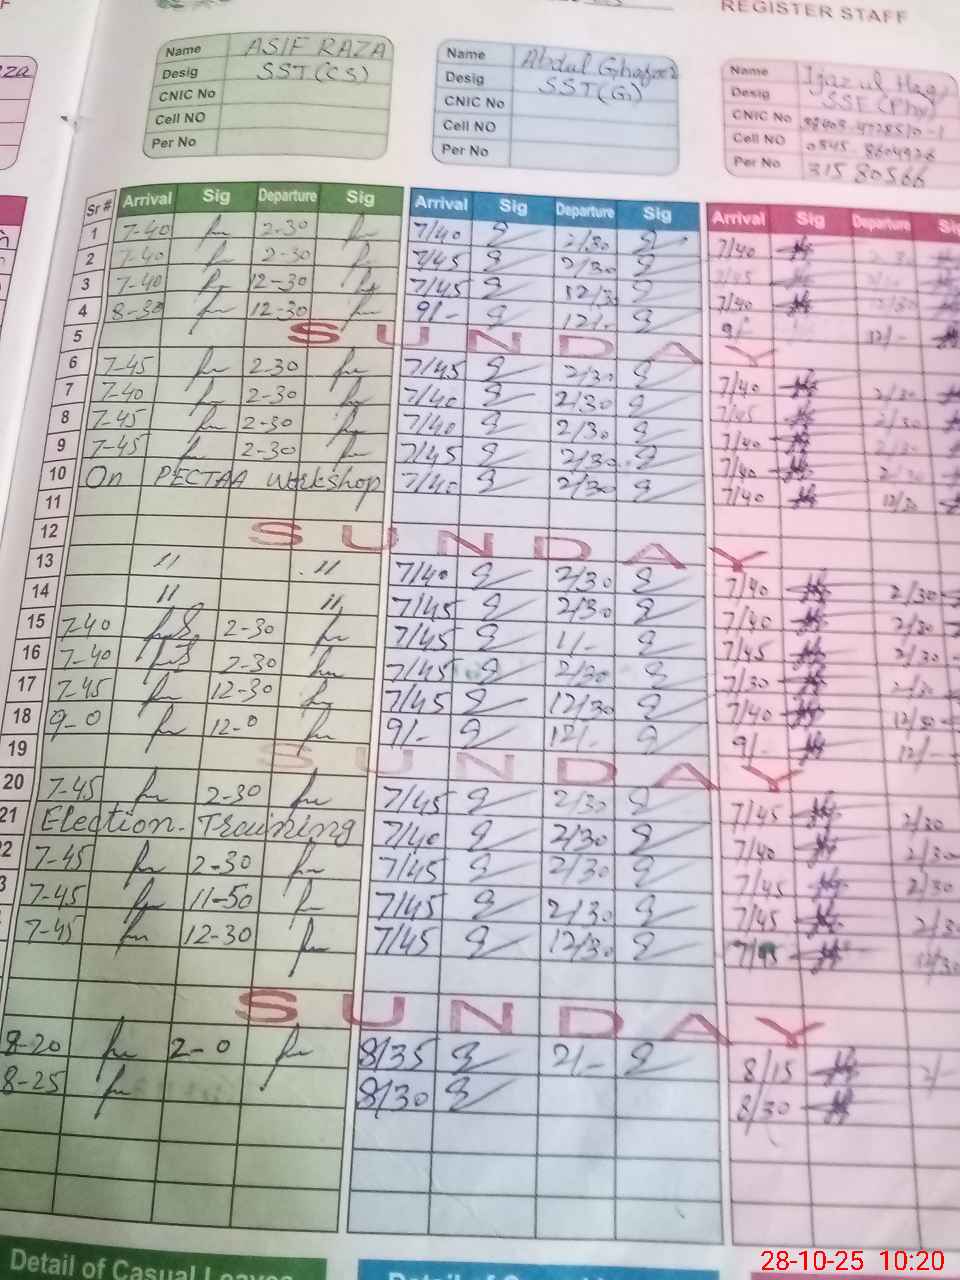 REGISTER STAFF
Name ASIF RAZA
Desig SST(CS)
CNIC No
Cell NO
Per No
Name Abdul Ghafoor
Desig SST(G)
CNIC No
Cell NO
Per No
Name Ijaz ul Haq
Desig
CNIC No
Cell NO
Per No 31580566
Sr # Arrival Sig Departure Sig Arrival Sig Departure Sig Arrival Sig Departure
1 7-40 2-30 7/40 2/30 7/40
2 7-40 2-30 7/45 2/30
3 7-40 12-30 7/45 12/30 7/40
4 8-30 12-30 9/- 12/- 9/ 12/-
5 SUNDAY
6 7-45 2-30 7/45 2/30 7/40 2/30
7 7-40 2-30 7/40 2/30 7/45 2/30
8 7-45 2-30 7/40 2/30 7/40
9 7-45 2-30 7/45 2/30 7/40
10 On PECTAA Workshop 7/40 2/30 7/40 12/30
11
12 SUNDAY
13 " " 7/40 2/30 7/40 2/30
14 " " 7/45 2/30 7/40 2/30
15 7-40 2-30 7/45 1/- 7/45 2/30
16 7-40 2-30 7/45 2/30 7/30
17 7-45 12-30 7/45 12/30 7/40 12/30
18 9-0 12-0 9/- 12/- 9/- 12/-
19 SUNDAY
20 7-45 2-30 7/45 2/30 7/45 2/30
21 Election Training 7/40 2/30 7/40 2/30
7-45 2-30 7/45 2/30 7/45 2/30
7-45 11-50 7/45 2/30 7/45
7-45 12-30 7/45 12/30
SUNDAY
8-20 2-0 8/35 2/- 8/15
8-25 8/30 8/30
Detail of Casual Leaves
28-10-25 10:20